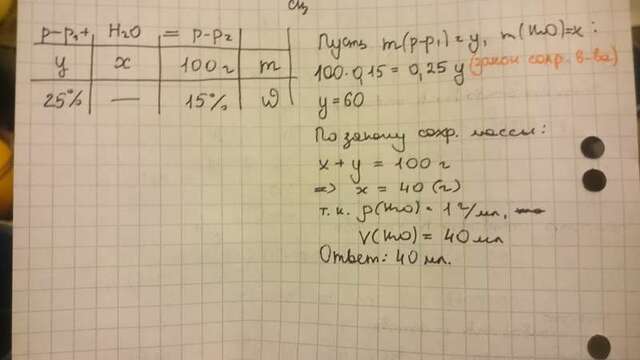 р-р₁ + H₂O = р-р₂
y x 100 г m
25% — 15% ω
Пусть m(р-р₁) = y, m(H₂O) = x :
100·0,15 = 0,25 y (закон сохр. в-ва)
y = 60
По закону сохр. массы:
x + y = 100 г
=> x = 40 (г)
т.к. ρ(H₂O) = 1 г/мл,
V(H₂O) = 40 мл
Ответ: 40 мл.